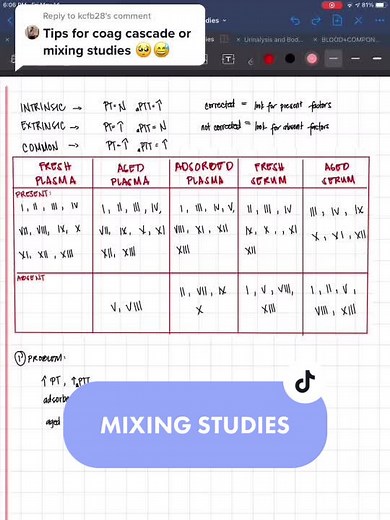 6:06 PM Fri May 14
81%
Reply to kcfb28's comment
Tips for coag cascade or
mixing studies 🥺😅
Urinalysis and Bod...
BLOOD+COMPON
INTRINSIC → PT=N aPTT=↑ corrected = look for present factors
EXTRINSIC → PT=↑ aPTT=N not corrected = look for absent factors
COMMON → PT=↑ aPTT=↑
FRESH PLASMA
AGED PLASMA
ADSORBED PLASMA
FRESH SERUM
AGED SERUM
PRESENT:
I, II, III, IV
VII, VIII, IX, X
XI, XII, XIII
I, II, III, IV,
VII, IX, X, XI
XII, XIII
I, III, IV, V,
VIII, XI, XII
XIII
II, III, IV
IX, X, XI
XII
III, IV, IX
X, XI, XII
ABSENT
V, VIII
II, VII, IX
X
I, V, VIII,
XIII
I, II, V,
VIII, XIII
① PROBLEM:
↑ PT, ↑ aPTT
adsorbe
aged
MIXING STUDIES